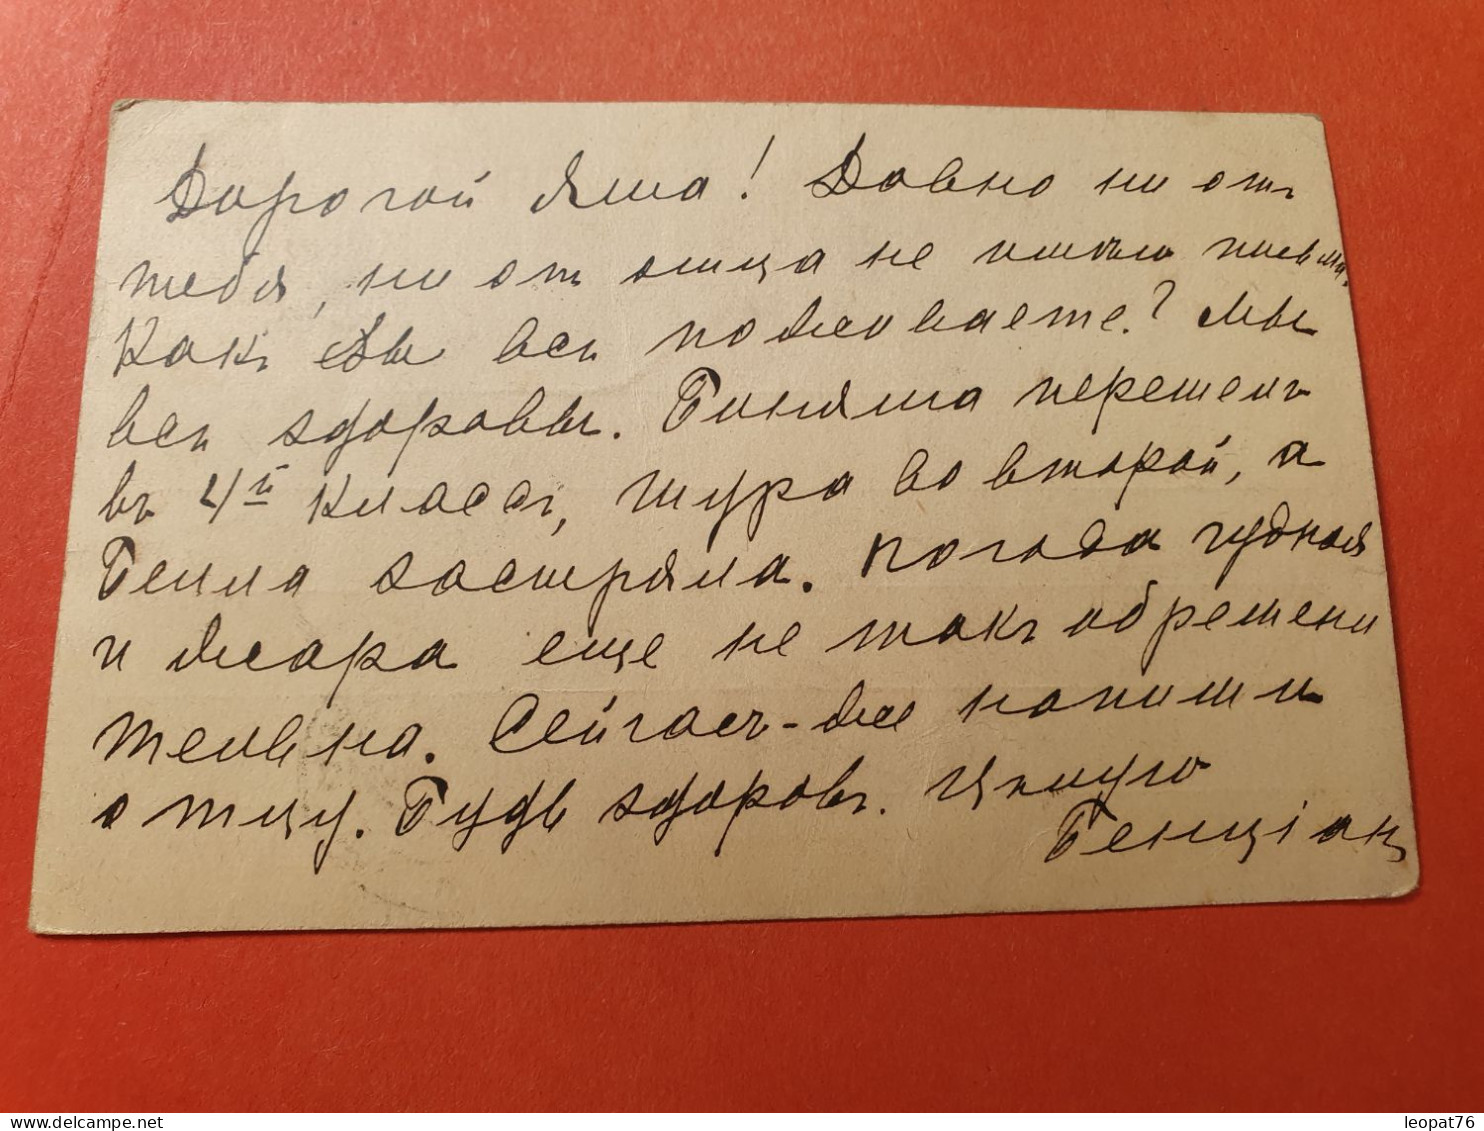 Дорогой Яша! Давно ни отъ
тебя, ни от отца не имѣлъ письма.
Какъ Вы всѣ поживаете? Мы
всѣ здоровы. Биняша перешелъ
въ 4й классъ, Шура во второй, а
Белла застряла. Погода чудная
и жара еще не такъ обремени
тельна. Сейчасъ-же напиши
отцу. Будь здоровъ. Цѣлую
Бенціан
leopat76